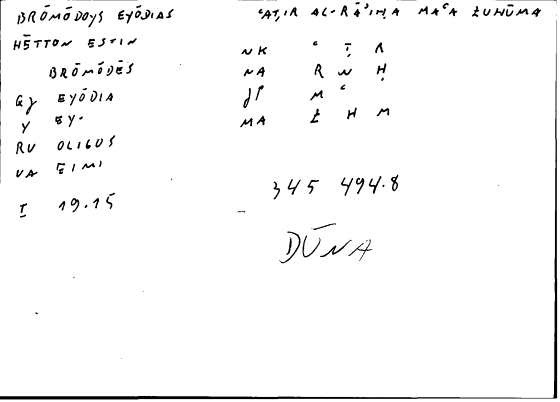 BRŌMŌDOYS EYŌDIAS
HĒTTON ESTIN
BRŌMŌDĒS
GJ EYŌDIA
Y EY.
RU OLIGOS
VA EIMI
I 19.15
ʿAṬIR AL-RĀʾIḤA MAʿA ZUHŪMA
NK ʿ Ṭ R
NA R W Ḥ
JP M ʿ
MA Z H M
345 494.8
DŪNA